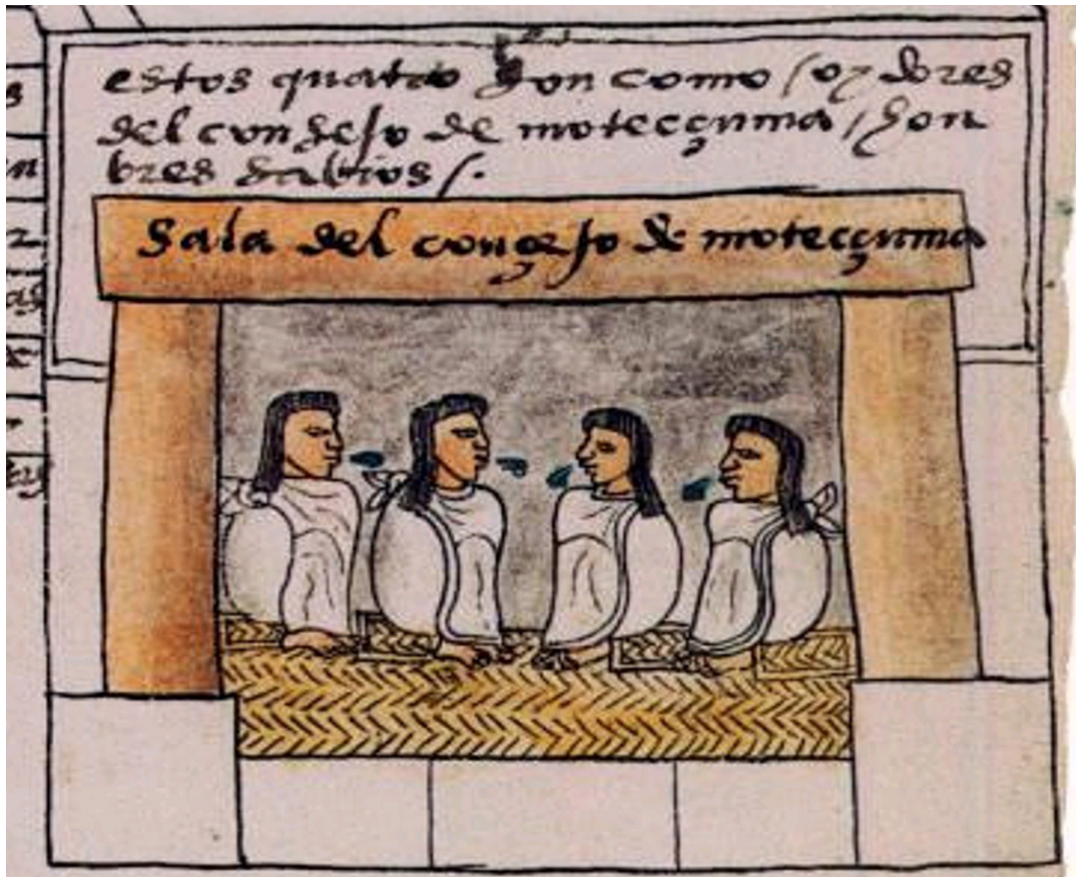 estos quatro son como / oydores
del consejo de motecçuma / hon
bres sabios /.
Sala del conçejo de motecçuma